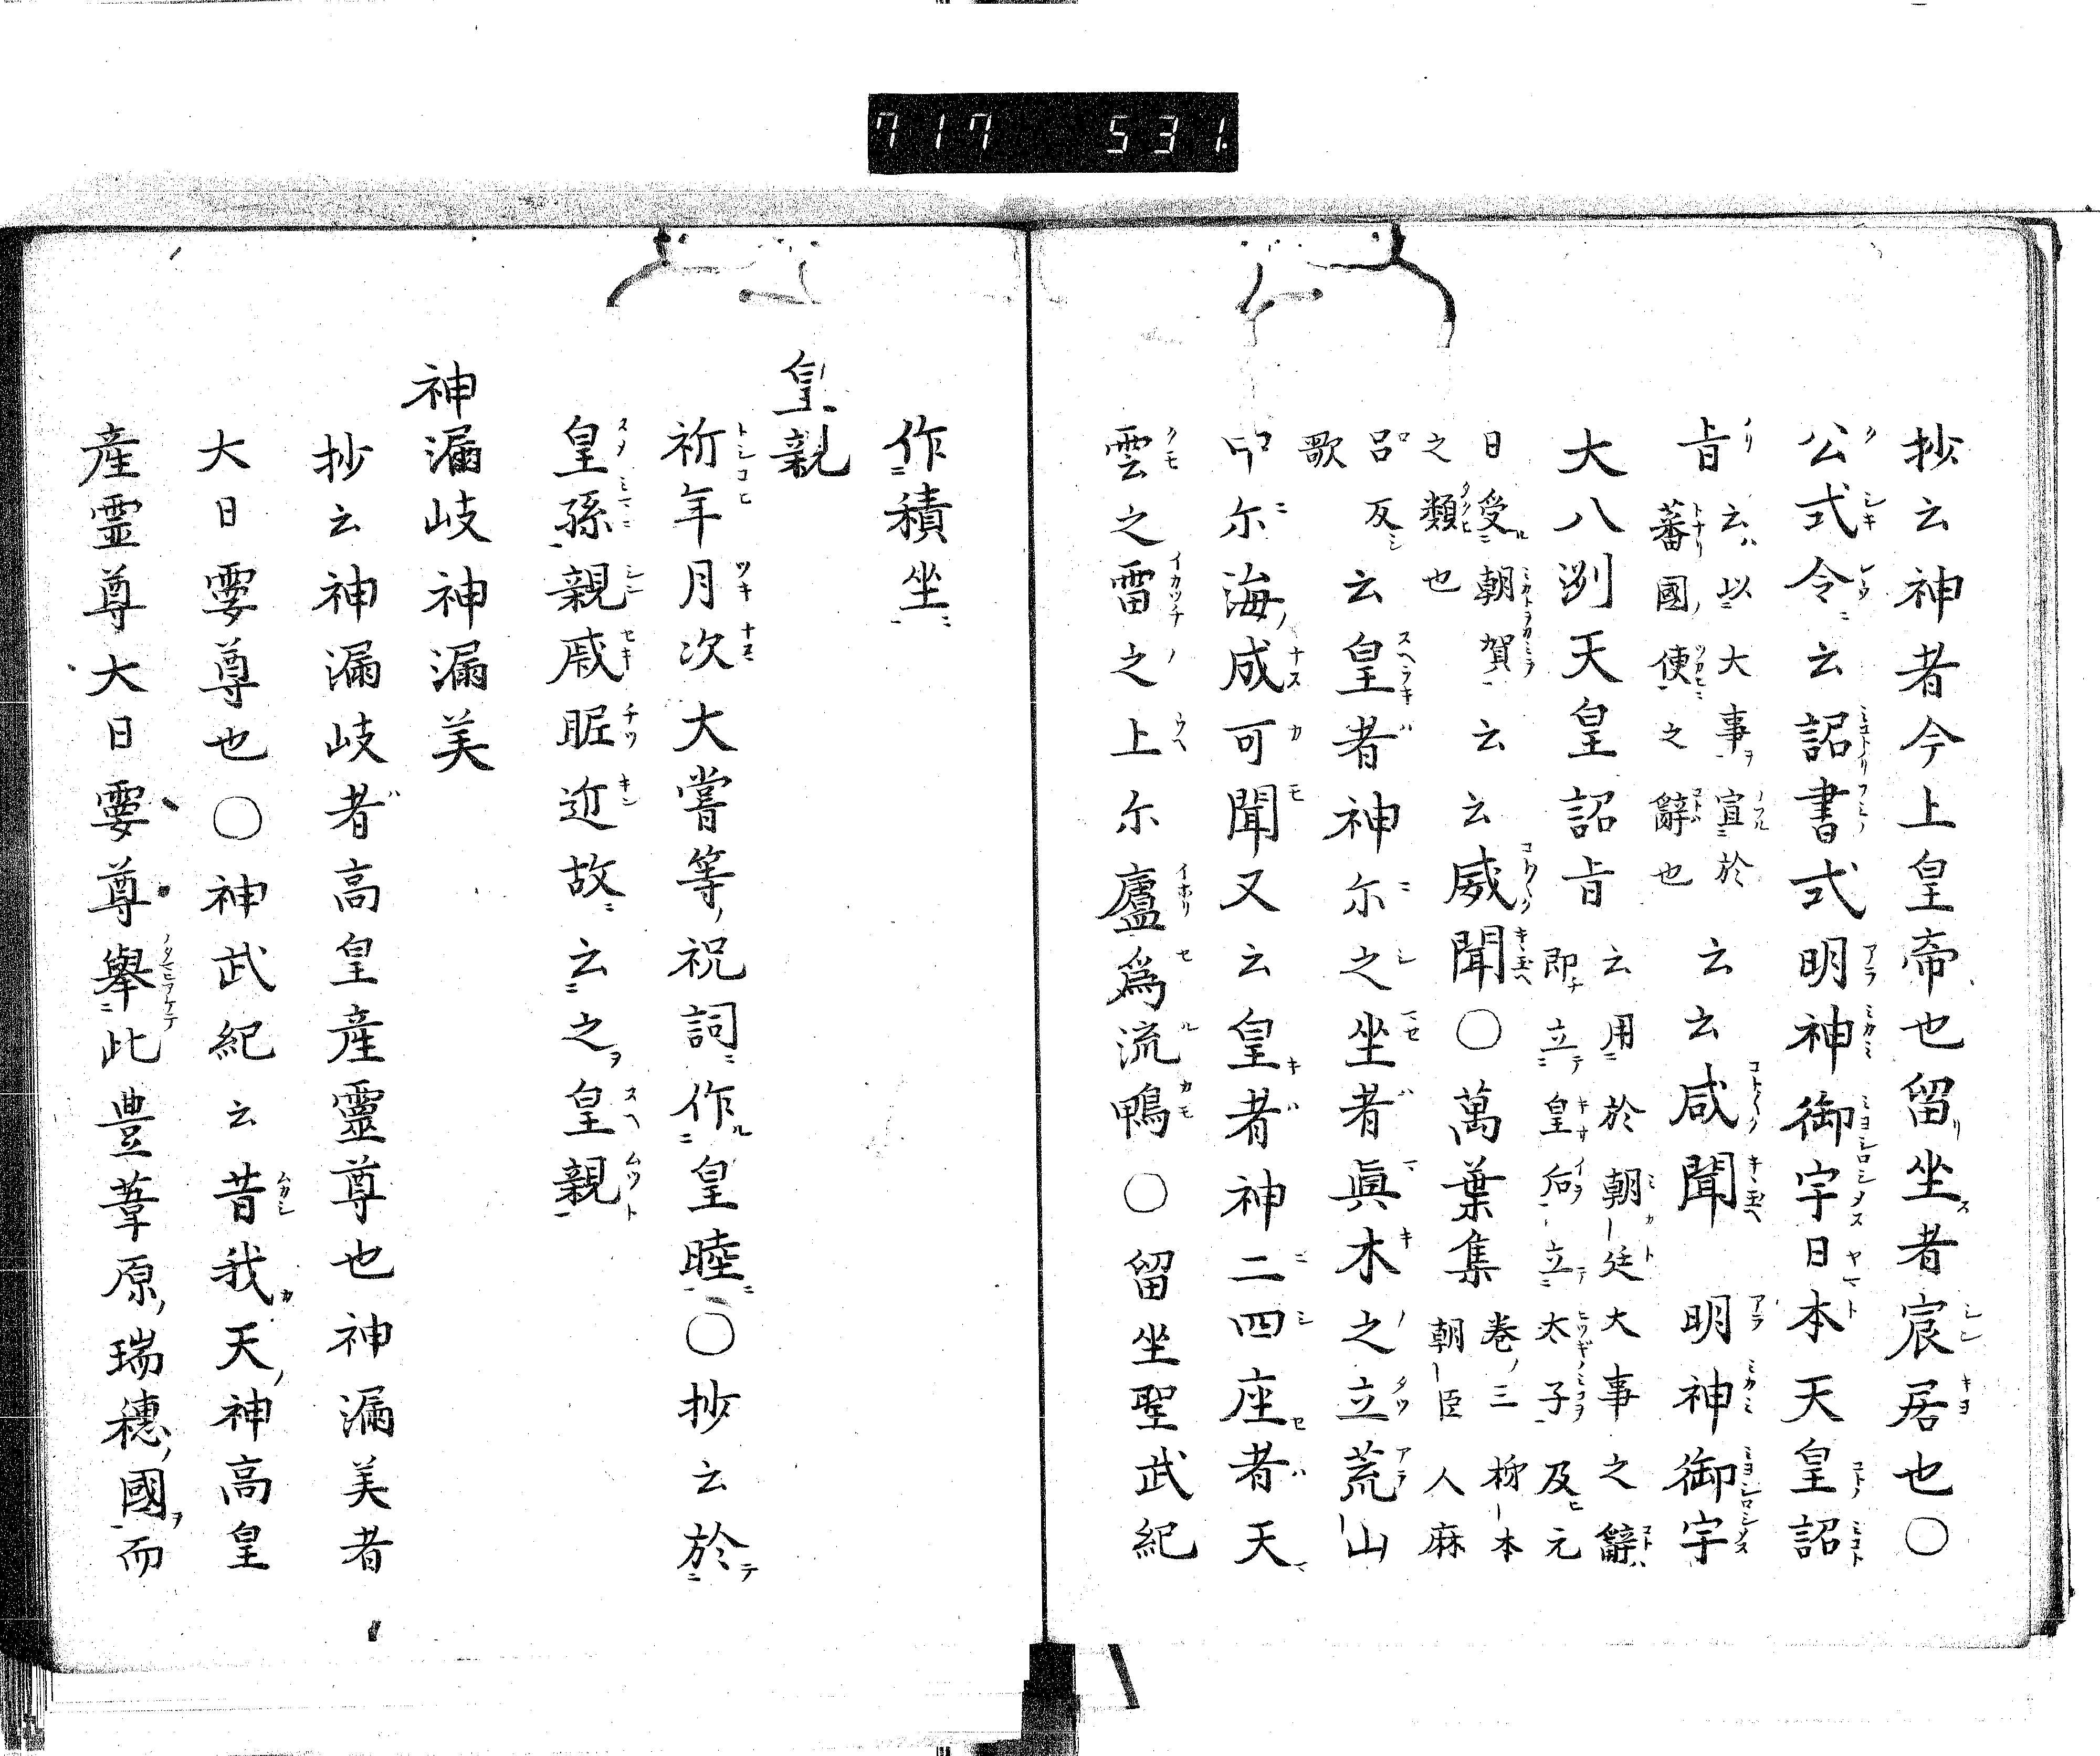 717 531.
抄云神者今上皇帝也留坐者宸居也〇
公式令云詔書式明神御宇日本天皇詔
旨云以大事宣於
蕃國使之辭也云云咸聞 明神御宇
大八洲天皇詔旨云用於朝廷大事之辭
即立皇后立太子及元
日受朝賀云云咸聞〇萬葉集卷三柹本
之類也
朝臣人麻
呂反云皇者神尓之坐者眞木之立荒山
歌
中尓海成可聞又云皇者神二四座者天
雲之雷之上尓廬爲流鴨〇留坐聖武紀
作積坐
皇親
祈年月次大嘗等祝詞作皇睦〇抄云於
皇孫親戚昵近故云之皇親
神漏岐神漏美
抄云神漏岐者高皇産靈尊也神漏美者
大日孁尊也〇神武紀云昔我天神高皇
産霊尊大日孁尊擧此豊葦原瑞穗國而